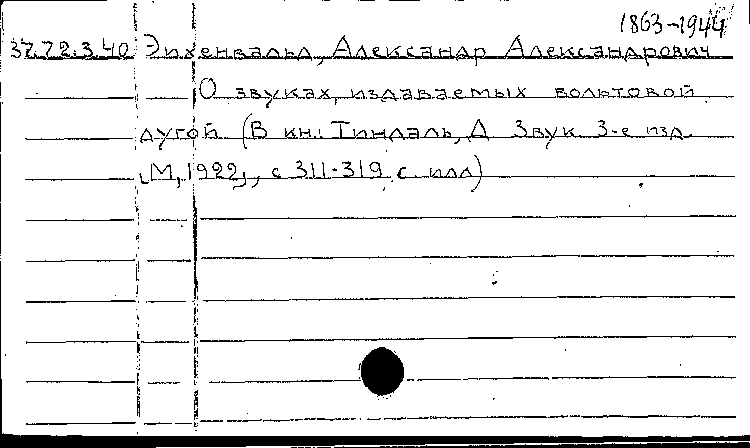 1863-1944
37.72.3.40 Эйхенвальд, Александр Александрович
О звуках, издаваемых вольтовой
дугой. (В кн.: Тиндаль, Д Звук 3-е изд.
[М, 1922], с 311-319 с. илл)